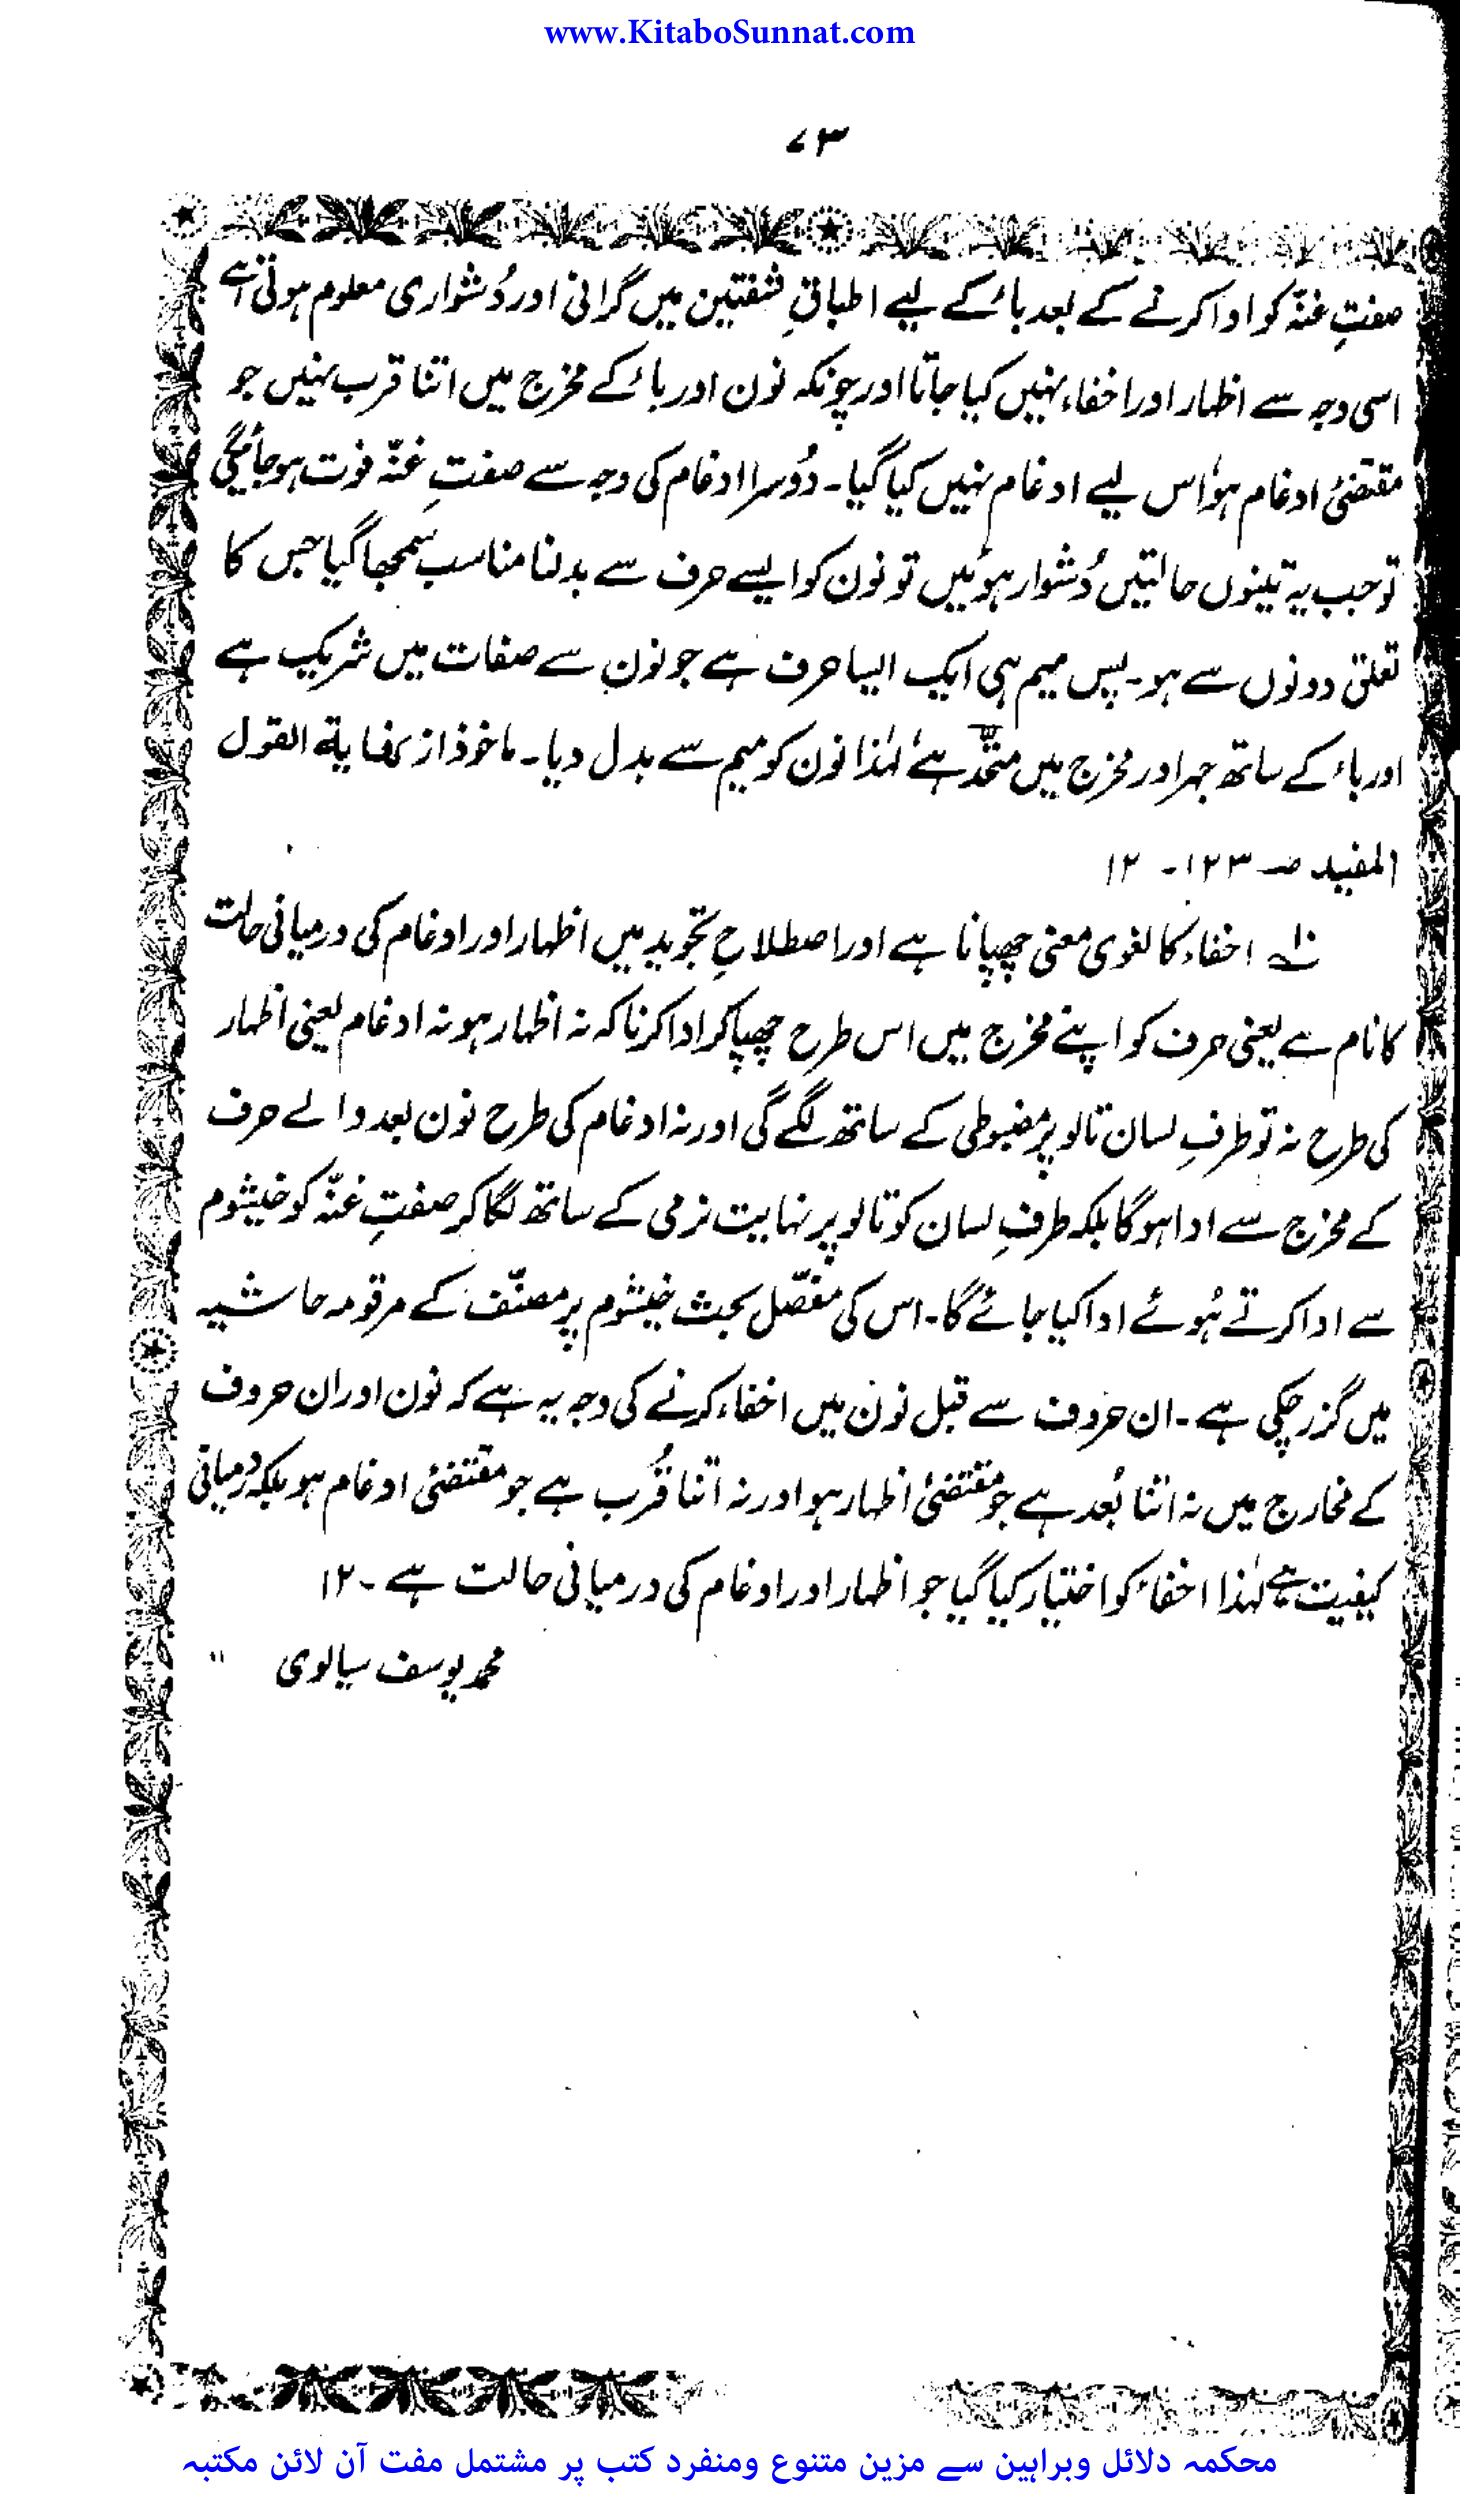 www.KitaboSunnat.com
۷۳
صفتِ غنّہ کو ادا کرتے کے بعد باء کے لیے اطباقِ شفتین میں گرانی اور دُشواری معلوم ہوتی ہے
اسی وجہ سے اظہار اور اخفاء نہیں کیا جاتا اور چونکہ نون اور باء کے مخرج میں اتنا قرب نہیں جو
مقتضیٔ ادغام ہو اس لیے ادغام نہیں کیا گیا۔ دُوسرا ادغام کی وجہ سے صفتِ غنّہ فوت ہو جائیگی
تو جب یہ تینوں حالتیں دُشوار ہوئیں تو نون کو ایسے حرف سے بدلنا مناسب سمجھا گیا جس کا
تعلق دونوں سے ہو۔ پس میم ہی ایک ایسا حرف ہے جو نون سے صفات میں شریک ہے
اور باء کے ساتھ جہر اور مخرج میں متحد ہے لہٰذا نون کو میم سے بدل دیا۔ ماخوذ از کفایة القول
المفید صـ ۱۲۳۔ ۱۲
؎۱۰ اخفاء کا لغوی معنی چھپانا ہے اور اصطلاحِ تجوید میں اظہار اور ادغام کی درمیانی حالت
کا نام ہے یعنی حرف کو اپنے مخرج میں اس طرح چھپا کر ادا کرنا کہ نہ اظہار ہو نہ ادغام یعنی اظہار
کی طرح نہ تو طرفِ لسان تالو پر مضبوطی کے ساتھ لگے گی اور نہ ادغام کی طرح نون بعد والے حرف
کے مخرج سے ادا ہوگا بلکہ طرفِ لسان کو تالو پر نہایت نرمی کے ساتھ لگا کر صفتِ غنّہ کو خیشوم
سے ادا کرتے ہُوئے ادا کیا جائے گا۔ اس کی مفصّل بحث خیشوم پر مصنّف کے مرقومہ حاشیہ
میں گزر چکی ہے۔ ان حروف سے قبل نون میں اخفاء کرنے کی وجہ یہ ہے کہ نون اور ان حروف
کے مخارج میں نہ اتنا بُعد ہے جو مقتضیٔ اظہار ہو اور نہ اتنا قُرب ہے جو مقتضیٔ ادغام ہو بلکہ درمیانی
کیفیت ہے لہٰذا اخفاء کو اختیار کیا گیا جو اظہار اور ادغام کی درمیانی حالت ہے۔ ۱۲
محمد یوسف سیالوی "
محکمہ دلائل وبراہین سے مزین متنوع ومنفرد کتب پر مشتمل مفت آن لائن مکتبہ